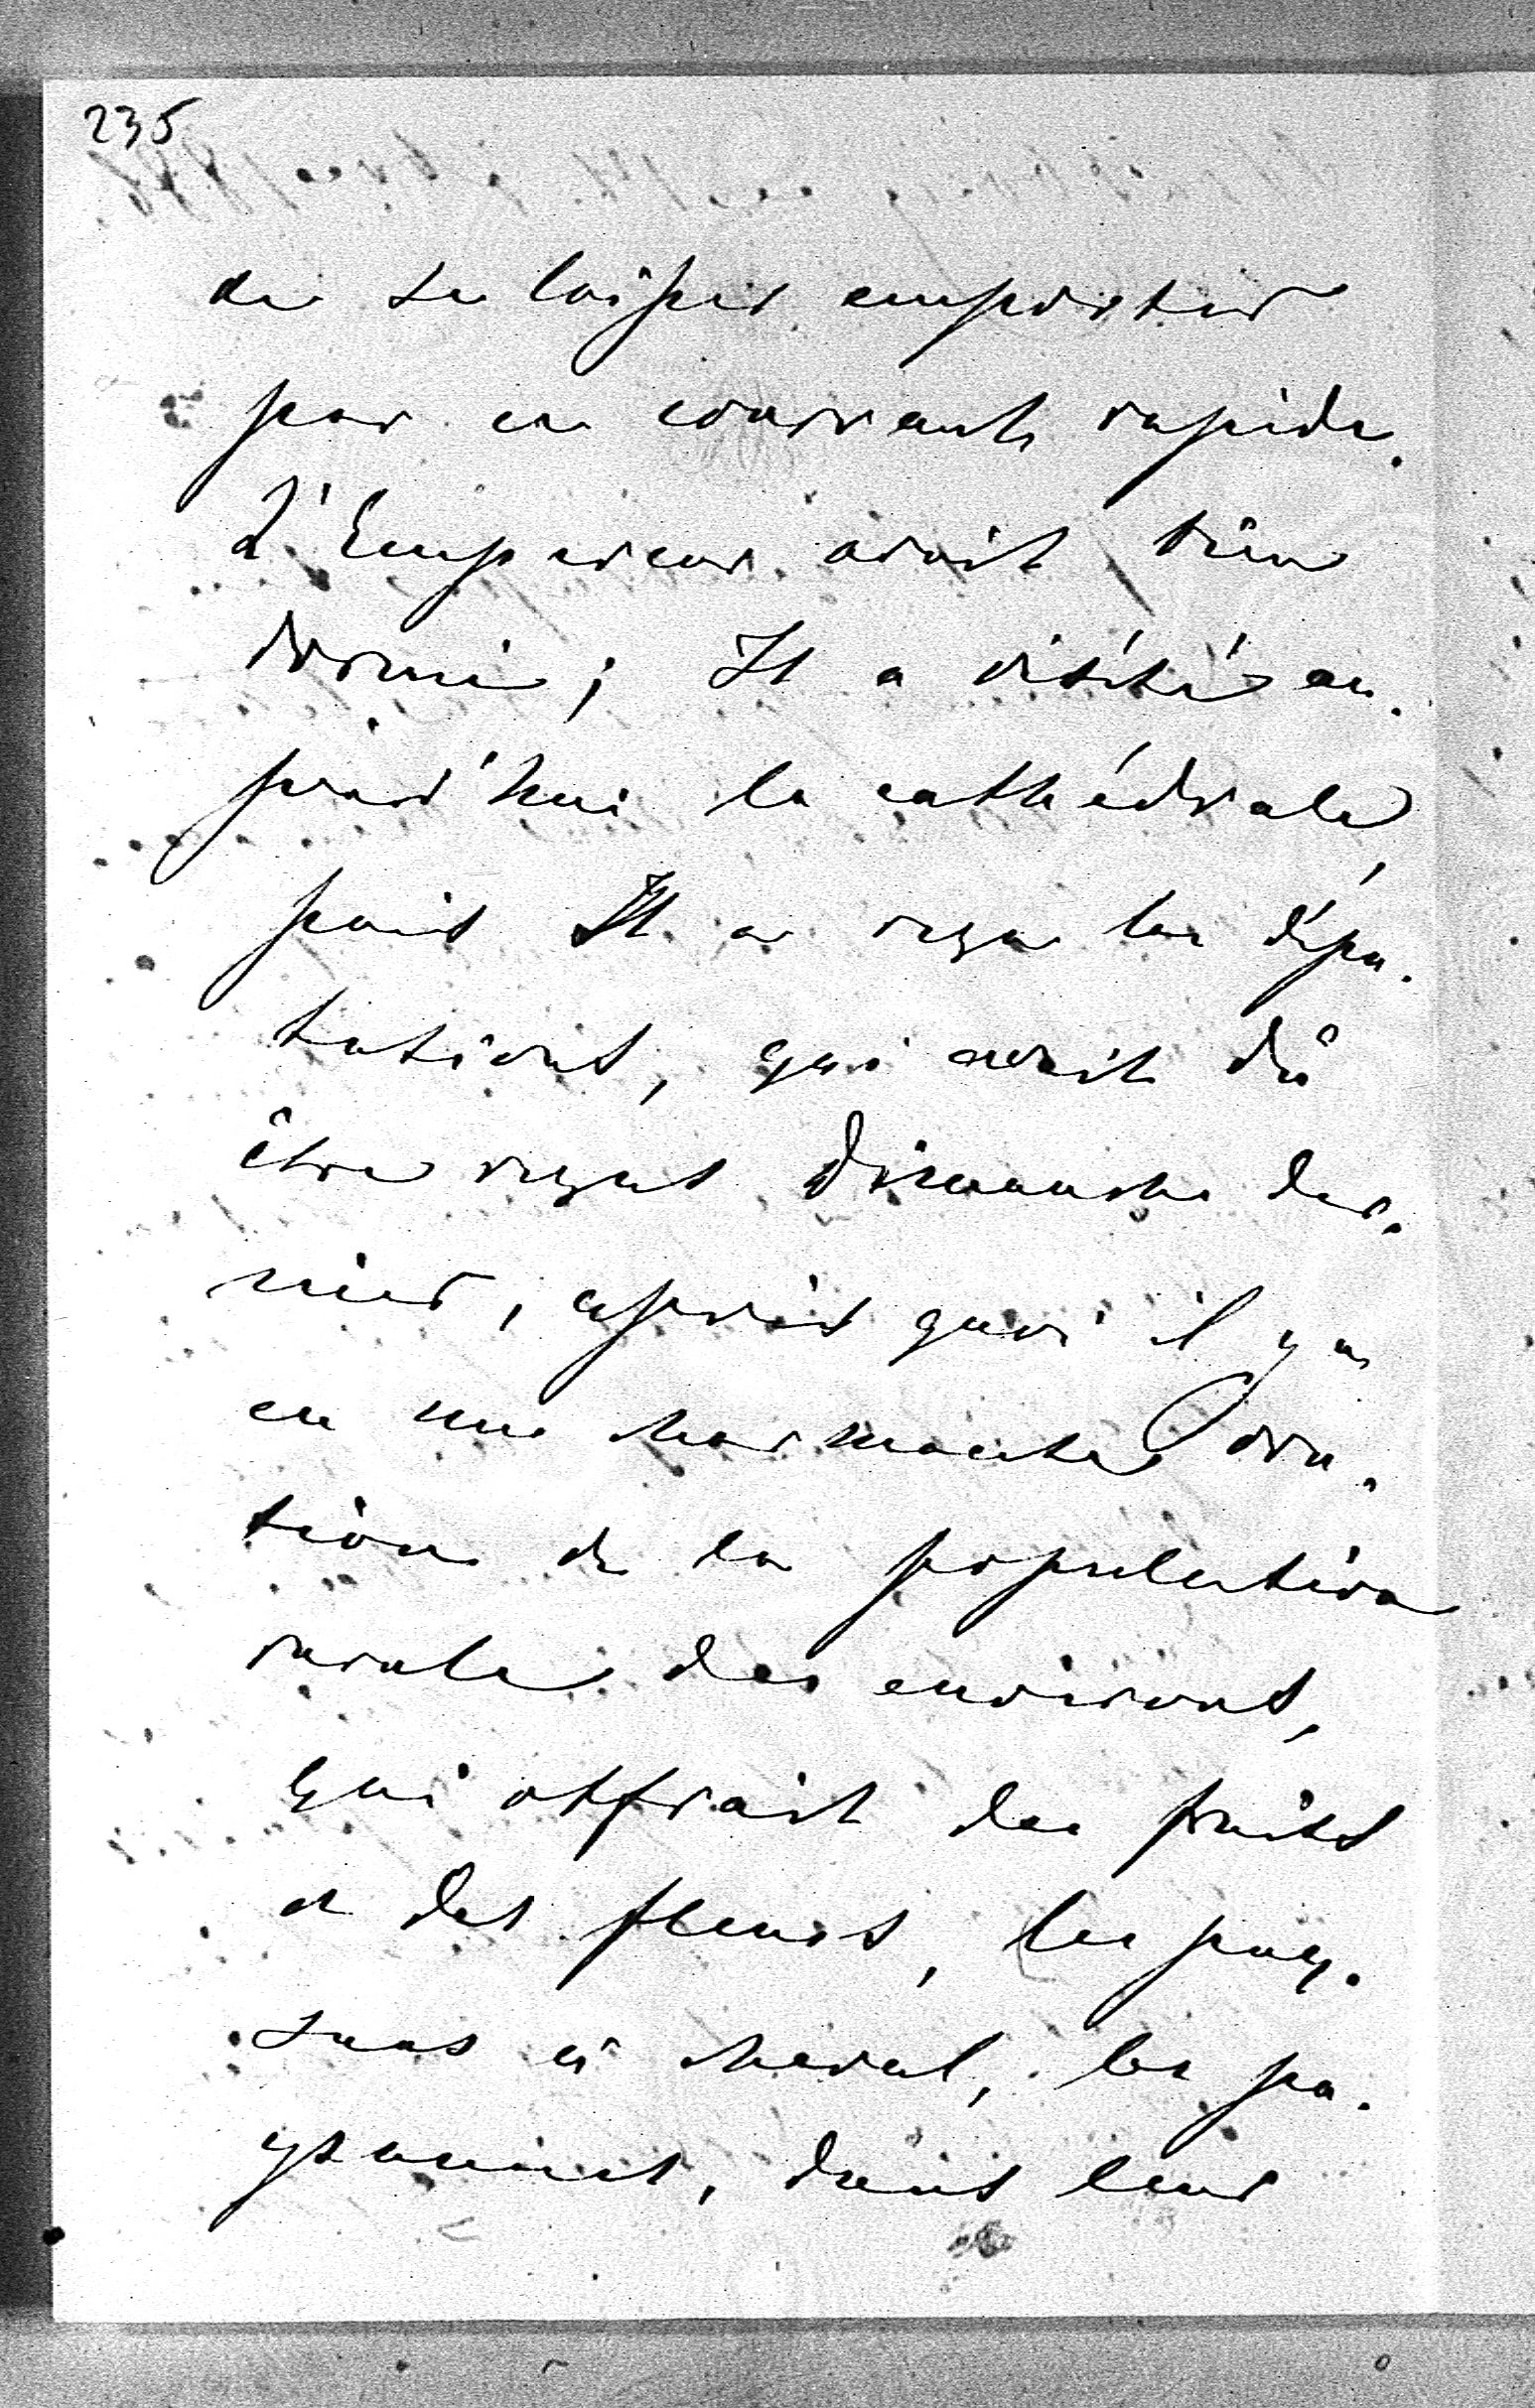 235
de se laisser emporter
par ce courrant rapide.
L'Empereur avait bien
dormi; Il a visité au-
jourd'hui la cathédrale,
puis Il a reçu les dépu-
tations, qui avait dû
être reçus Dimanche der-
nier, après quoi il y a
eu une charmante Ova-
tion de la population
rurale des environs,
qui offrait des fruits
et des fleurs, les pay-
sans à cheval, les pa-
ysannes, dans leur